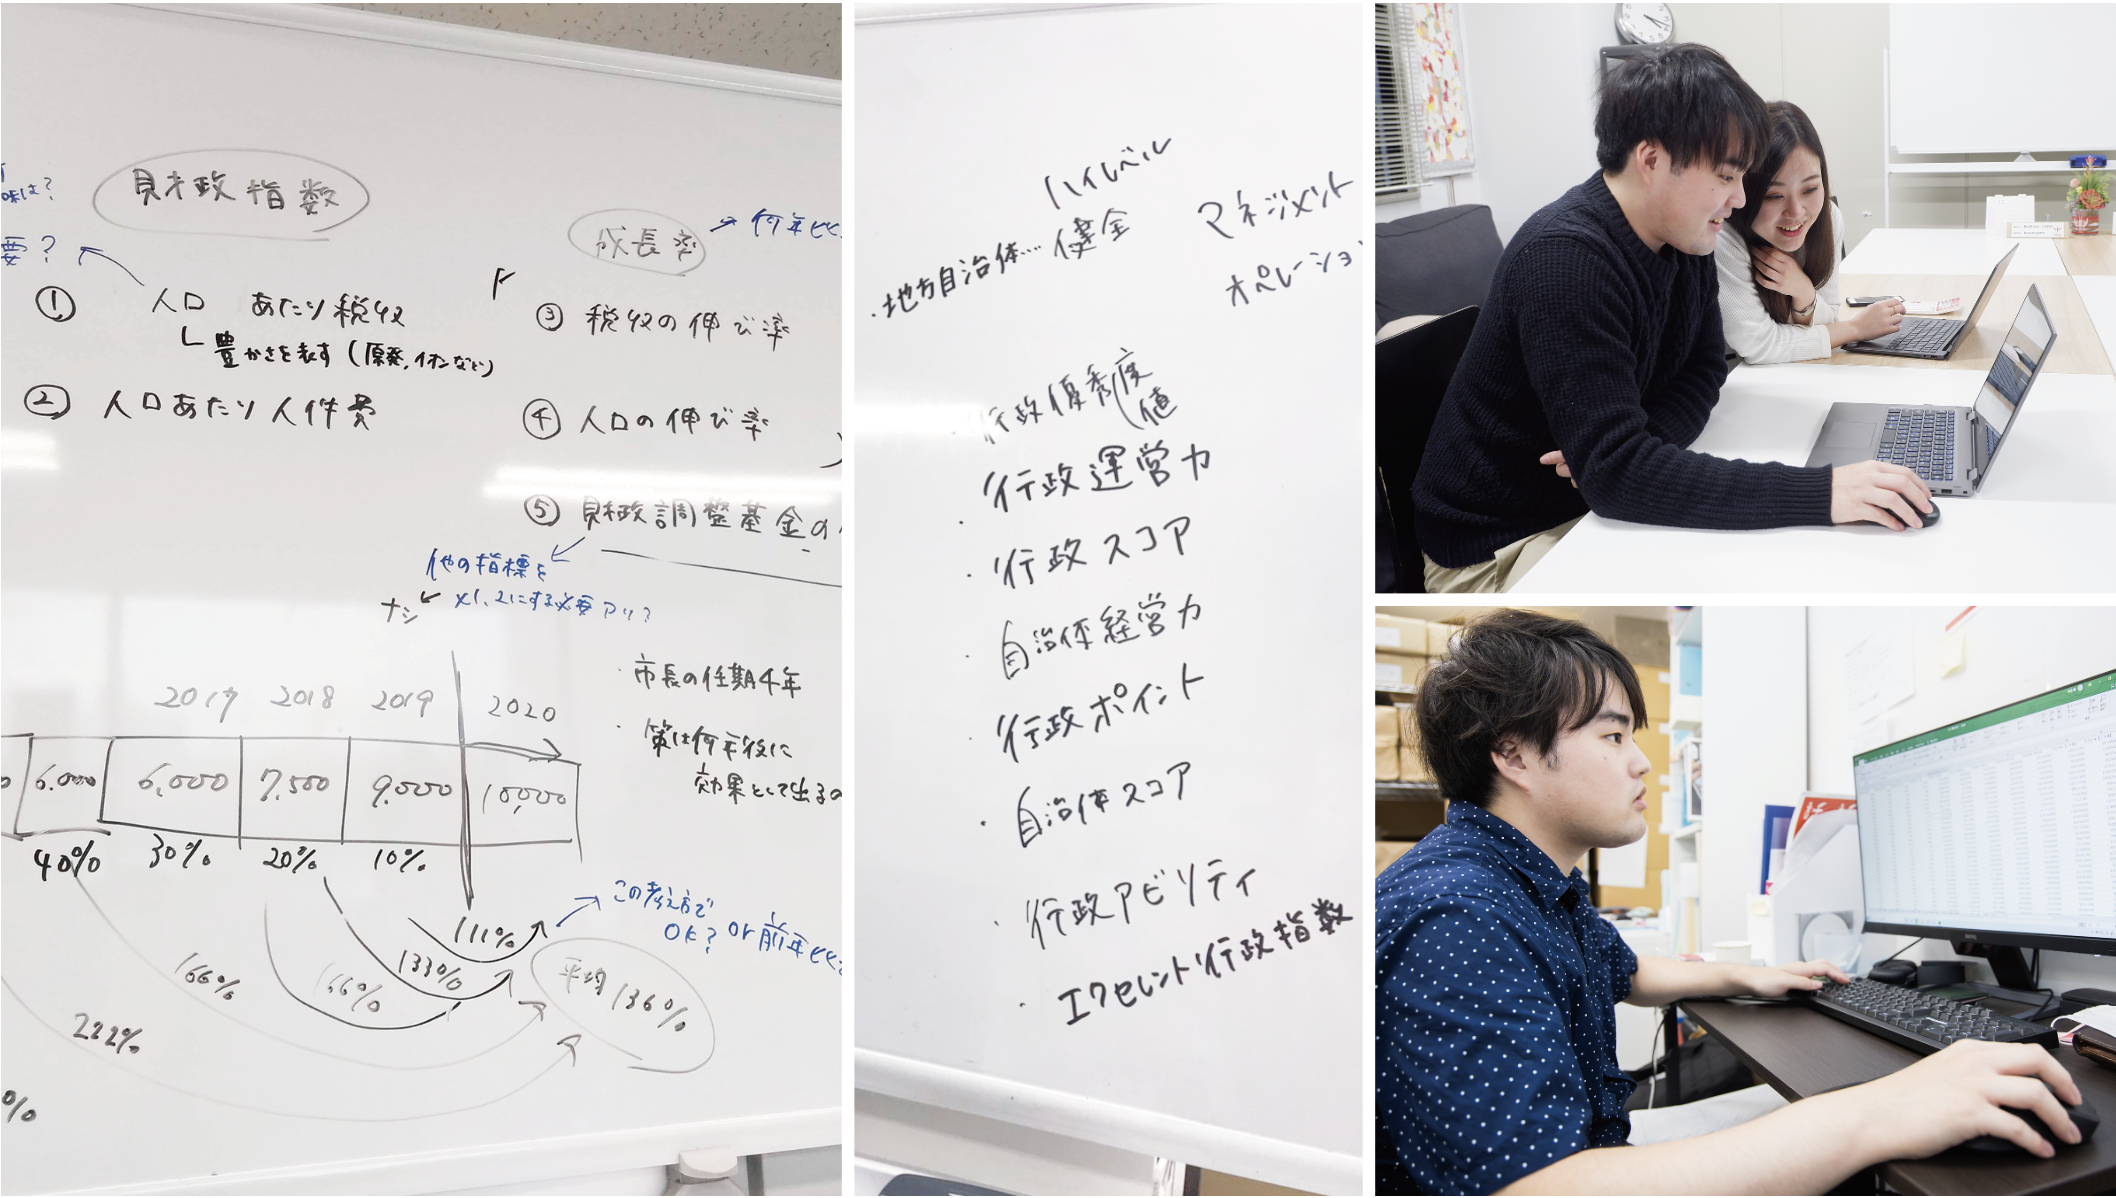 味は?
要?
財政指数
成長率
→ 何年比
① 人口 あたり税収
豊かさを表す(原発,イオンなど)
② 人口あたり人件費
③ 税収の伸び率
④ 人口の伸び率
⑤ 財政調整基金の
他の指標を
×1.2にする必要アリ?
ナシ
・市長の任期4年
・策は何年後に
効果として出るの
2017 2018 2019 2020
6.000 6,000 7,500 9,000 10,000
40% 30% 20% 10%
111%
133%
166%
166%
222%
%
平均 136%
この考え方で
OK? or 前年比
ハイレベル
・地方自治体… 健全
マネジメント
オペレーション
・行政優秀度
値
行政運営力
・行政スコア
・自治体経営力
・行政ポイント
・自治体スコア
・行政アビリティ
・エクセレント行政指数